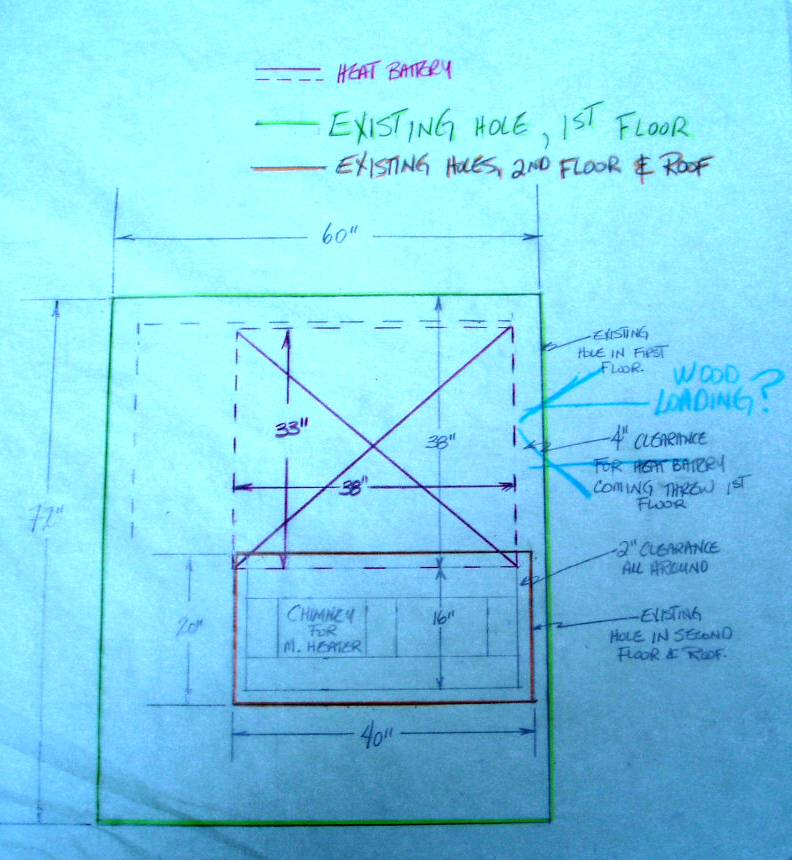 HEAT BATTERY
EXISTING HOLE, 1ST FLOOR
EXISTING HOLES, 2ND FLOOR & ROOF
60"
EXISTING
HOLE IN FIRST
FLOOR.
WOOD
LOADING?
33"
38"
4" CLEARANCE
FOR HEAT BATTERY
COMING THREW 1ST
FLOOR
38"
72"
2" CLEARANCE
ALL AROUND
20"
CHIMNEY
FOR
M. HEATER
16"
EXISTING
HOLE IN SECOND
FLOOR & ROOF.
40"